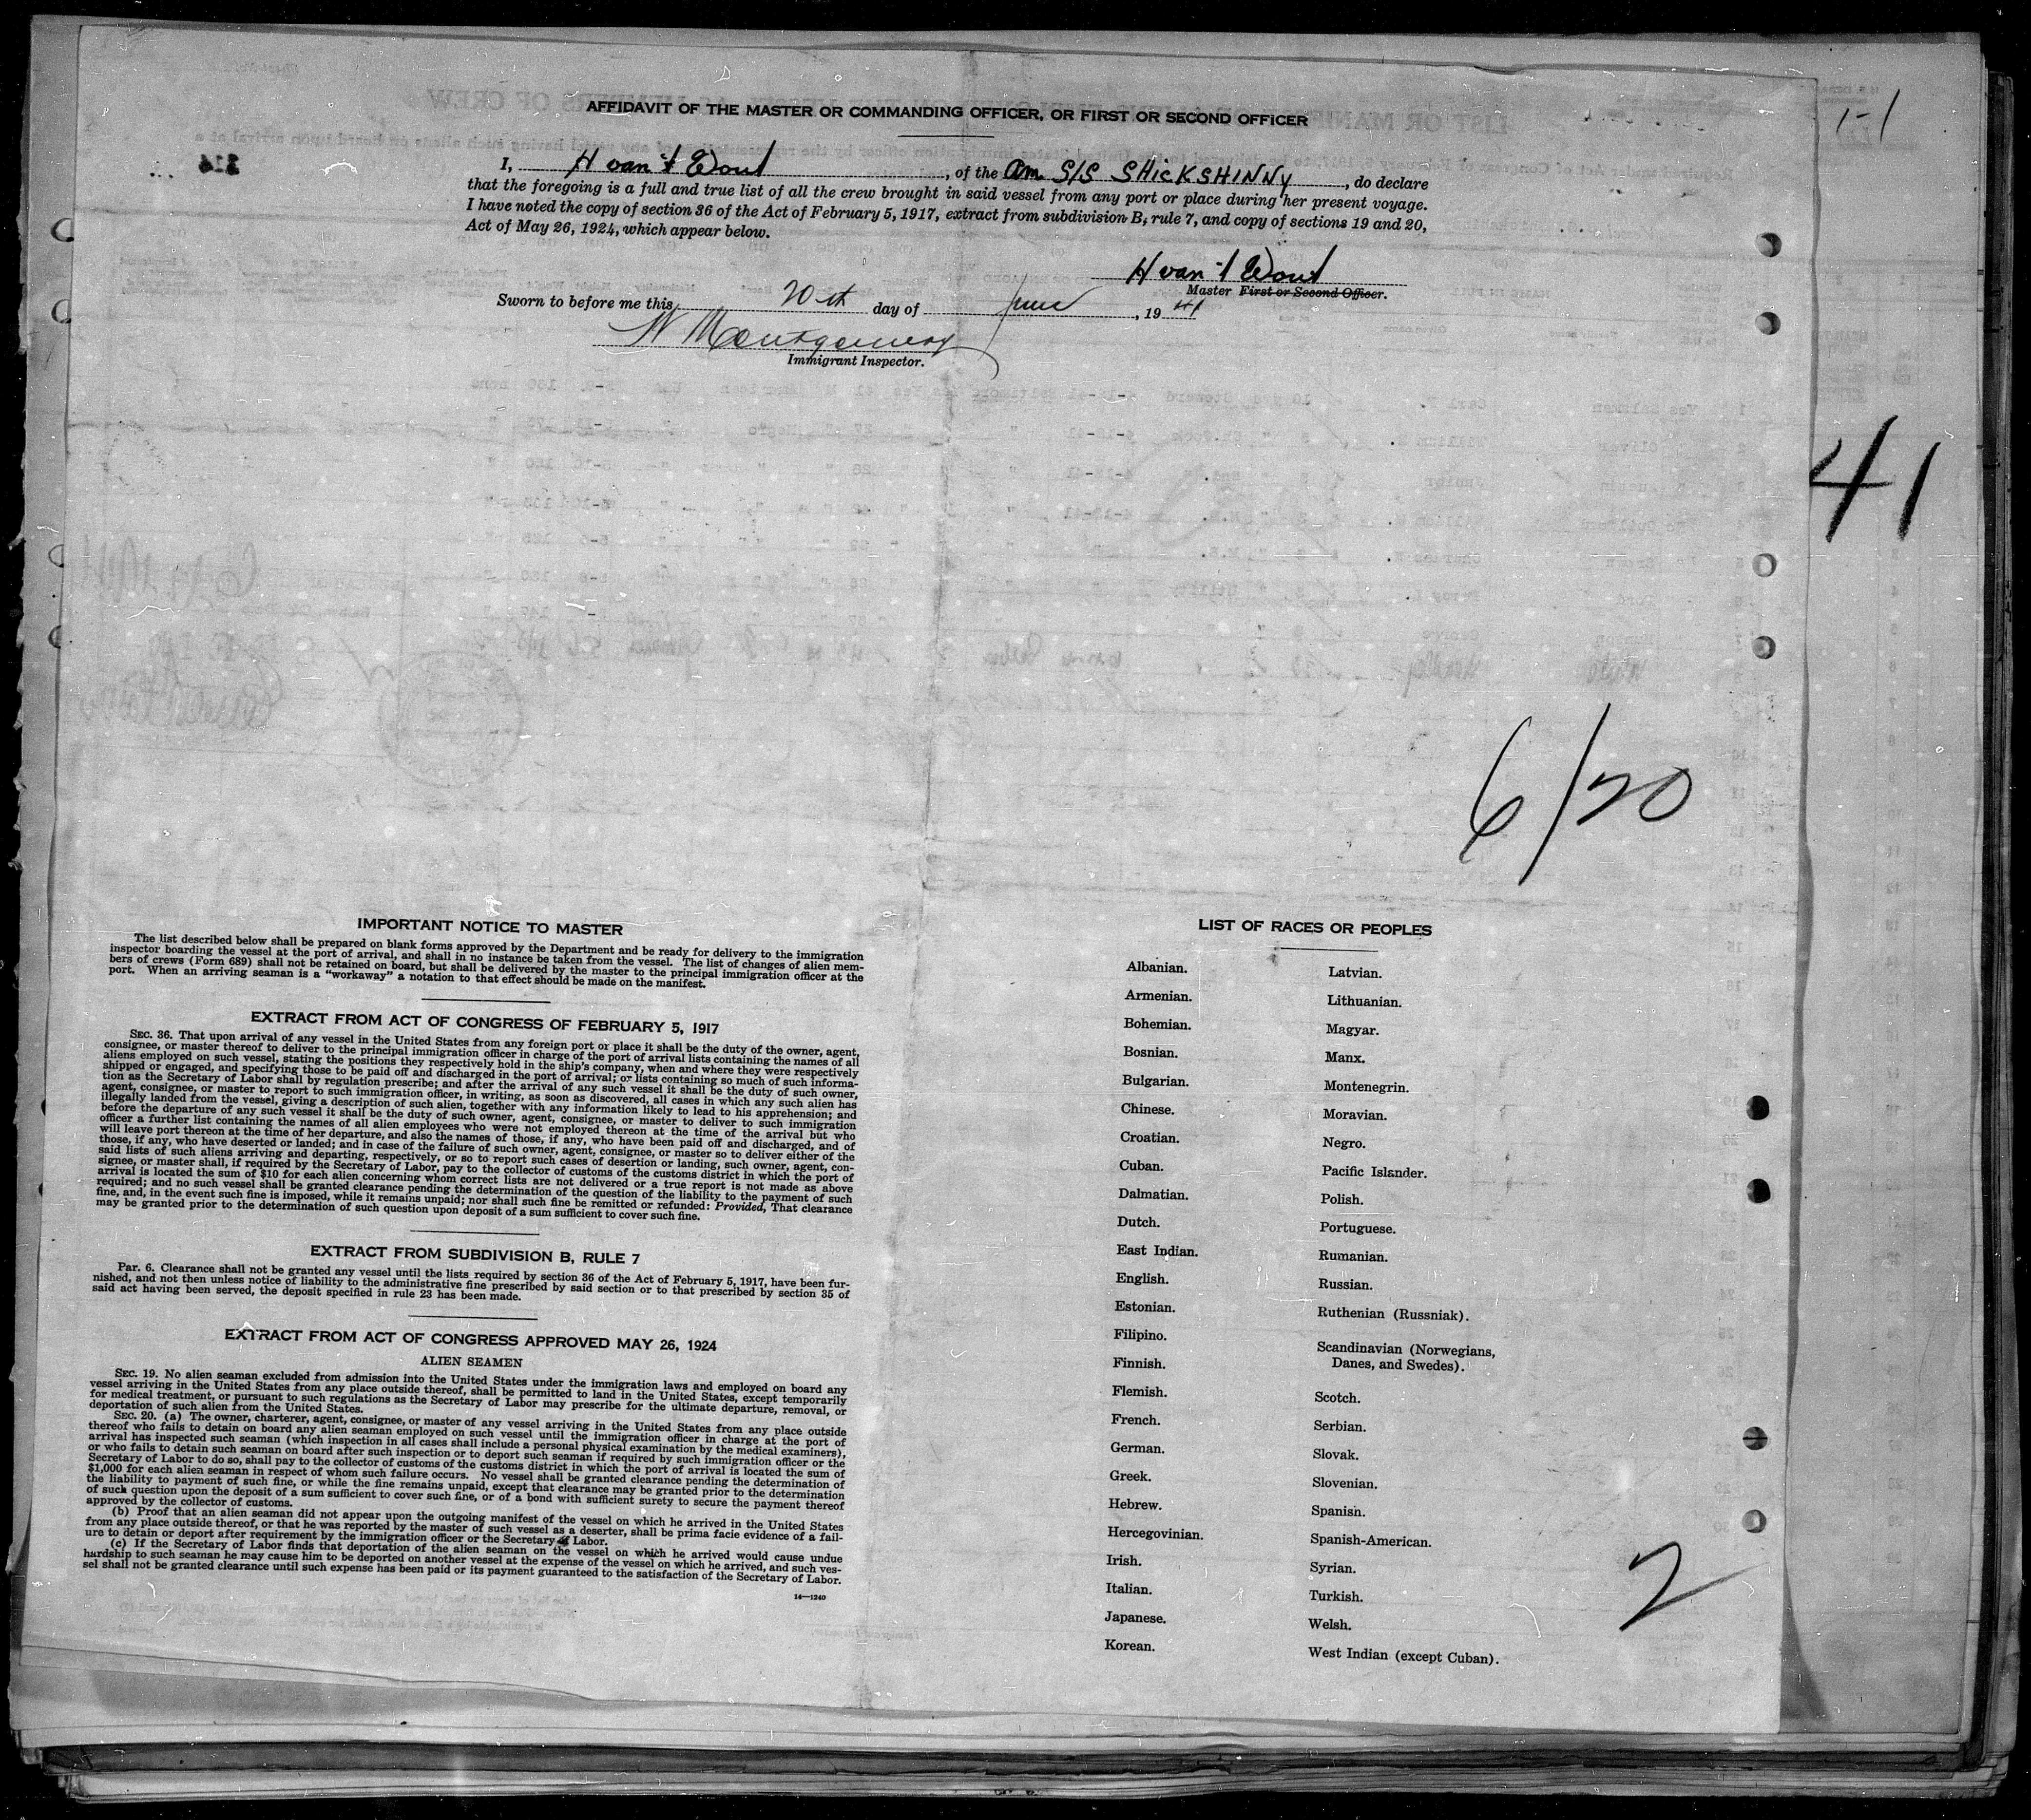 AFFIDAVIT OF THE MASTER OR COMMANDING OFFICER, OR FIRST OR SECOND OFFICER
1-1
I, H van 't Wout, of the Am S/S SHICKSHINNY, do declare
that the foregoing is a full and true list of all the crew brought in said vessel from any port or place during her present voyage.
I have noted the copy of section 36 of the Act of February 5, 1917, extract from subdivision B, rule 7, and copy of sections 19 and 20,
Act of May 26, 1924, which appear below.
H van 't Wout
Master First or Second Officer.
Sworn to before me this 20th day of June, 1941
Montgomery
Immigrant Inspector.
41
6/20
IMPORTANT NOTICE TO MASTER
The list described below shall be prepared on blank forms approved by the Department and be ready for delivery to the immigration
inspector boarding the vessel at the port of arrival, and shall in no instance be taken from the vessel. The list of changes of alien mem-
bers of crews (Form 689) shall not be retained on board, but shall be delivered by the master to the principal immigration officer at the
port. When an arriving seaman is a "workaway" a notation to that effect should be made on the manifest.
EXTRACT FROM ACT OF CONGRESS OF FEBRUARY 5, 1917
SEC. 36. That upon arrival of any vessel in the United States from any foreign port or place it shall be the duty of the owner, agent,
consignee, or master thereof to deliver to the principal immigration officer in charge of the port of arrival lists containing the names of all
aliens employed on such vessel, stating the positions they respectively hold in the ship's company, when and where they were respectively
shipped or engaged, and specifying those to be paid off and discharged in the port of arrival; or lists containing so much of such informa-
tion as the Secretary of Labor shall by regulation prescribe; and after the arrival of any such vessel it shall be the duty of such owner,
agent, consignee, or master to report to such immigration officer, in writing, as soon as discovered, all cases in which any such alien has
illegally landed from the vessel, giving a description of such alien, together with any information likely to lead to his apprehension; and
before the departure of any such vessel it shall be the duty of such owner, agent, consignee, or master to deliver to such immigration
officer a further list containing the names of all alien employees who were not employed thereon at the time of the arrival but who
will leave port thereon at the time of her departure, and also the names of those, if any, who have been paid off and discharged, and of
those, if any, who have deserted or landed; and in case of the failure of such owner, agent, consignee, or master so to deliver either of the
said lists of such aliens arriving and departing, respectively, or so to report such cases of desertion or landing, such owner, agent, con-
signee, or master shall, if required by the Secretary of Labor, pay to the collector of customs of the customs district in which the port of
arrival is located the sum of $10 for each alien concerning whom correct lists are not delivered or a true report is not made as above
required; and no such vessel shall be granted clearance pending the determination of the question of the liability to the payment of such
fine, and, in the event such fine is imposed, while it remains unpaid; nor shall such fine be remitted or refunded: Provided, That clearance
may be granted prior to the determination of such question upon deposit of a sum sufficient to cover such fine.
EXTRACT FROM SUBDIVISION B, RULE 7
Par. 6. Clearance shall not be granted any vessel until the lists required by section 36 of the Act of February 5, 1917, have been fur-
nished, and not then unless notice of liability to the administrative fine prescribed by said section or to that prescribed by section 35 of
said act having been served, the deposit specified in rule 23 has been made.
EXTRACT FROM ACT OF CONGRESS APPROVED MAY 26, 1924
ALIEN SEAMEN
SEC. 19. No alien seaman excluded from admission into the United States under the immigration laws and employed on board any
vessel arriving in the United States from any place outside thereof, shall be permitted to land in the United States, except temporarily
for medical treatment, or pursuant to such regulations as the Secretary of Labor may prescribe for the ultimate departure, removal, or
deportation of such alien from the United States.
SEC. 20. (a) The owner, charterer, agent, consignee, or master of any vessel arriving in the United States from any place outside
thereof who fails to detain on board any alien seaman employed on such vessel until the immigration officer in charge at the port of
arrival has inspected such seaman (which inspection in all cases shall include a personal physical examination by the medical examiners),
or who fails to detain such seaman on board after such inspection or to deport such seaman if required by such immigration officer or the
Secretary of Labor to do so, shall pay to the collector of customs of the customs district in which the port of arrival is located the sum of
$1,000 for each alien seaman in respect of whom such failure occurs. No vessel shall be granted clearance pending the determination of
the liability to payment of such fine, or while the fine remains unpaid, except that clearance may be granted prior to the determination
of such question upon the deposit of a sum sufficient to cover such fine, or of a bond with sufficient surety to secure the payment thereof
approved by the collector of customs.
(b) Proof that an alien seaman did not appear upon the outgoing manifest of the vessel on which he arrived in the United States
from any place outside thereof, or that he was reported by the master of such vessel as a deserter, shall be prima facie evidence of a fail-
ure to detain or deport after requirement by the immigration officer or the Secretary of Labor.
(c) If the Secretary of Labor finds that deportation of the alien seaman on the vessel on which he arrived would cause undue
hardship to such seaman he may cause him to be deported on another vessel at the expense of the vessel on which he arrived, and such ves-
sel shall not be granted clearance until such expense has been paid or its payment guaranteed to the satisfaction of the Secretary of Labor.
14—1240
LIST OF RACES OR PEOPLES
Albanian.
Armenian.
Bohemian.
Bosnian.
Bulgarian.
Chinese.
Croatian.
Cuban.
Dalmatian.
Dutch.
East Indian.
English.
Estonian.
Filipino.
Finnish.
Flemish.
French.
German.
Greek.
Hebrew.
Hercegovinian.
Irish.
Italian.
Japanese.
Korean.
Latvian.
Lithuanian.
Magyar.
Manx.
Montenegrin.
Moravian.
Negro.
Pacific Islander.
Polish.
Portuguese.
Rumanian.
Russian.
Ruthenian (Russniak).
Scandinavian (Norwegians,
Danes, and Swedes).
Scotch.
Serbian.
Slovak.
Slovenian.
Spanish.
Spanish-American.
Syrian.
Turkish.
Welsh.
West Indian (except Cuban).
2